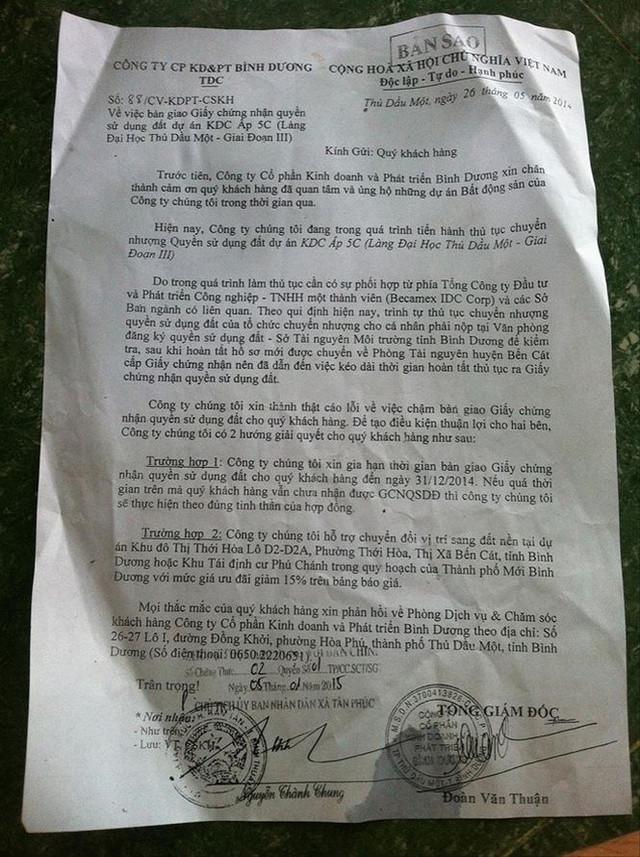 BẢN SAO
CÔNG TY CP KD&PT BÌNH DƯƠNG
TDC
CỘNG HOÀ XÃ HỘI CHỦ NGHĨA VIỆT NAM
Độc lập - Tự do - Hạnh phúc
Số: 88/CV-KDPT-CSKH
Thủ Dầu Một, ngày 26 tháng 05 năm 2014
Về việc bàn giao Giấy chứng nhận quyền
sử dụng đất dự án KDC Ấp 5C (Làng
Đại Học Thủ Dầu Một - Giai Đoạn III)
Kính Gửi: Quý khách hàng
Trước tiên, Công ty Cổ phần Kinh doanh và Phát triển Bình Dương xin chân
thành cảm ơn quý khách hàng đã quan tâm và ủng hộ những dự án Bất động sản của
Công ty chúng tôi trong thời gian qua.
Hiện nay, Công ty chúng tôi đang trong quá trình tiến hành thủ tục chuyển
nhượng Quyền sử dụng đất dự án KDC Ấp 5C (Làng Đại Học Thủ Dầu Một - Giai
Đoạn III)
Do trong quá trình làm thủ tục cần có sự phối hợp từ phía Tổng Công ty Đầu tư
và Phát triển Công nghiệp - TNHH một thành viên (Becamex IDC Corp) và các Sở
Ban ngành có liên quan. Theo qui định hiện nay, trình tự thủ tục chuyển nhượng
quyền sử dụng đất của tổ chức chuyển nhượng cho cá nhân phải nộp tại Văn phòng
đăng ký quyền sử dụng đất - Sở Tài nguyên Môi trường tỉnh Bình Dương để kiểm
tra, sau khi hoàn tất hồ sơ mới được chuyển về Phòng Tài nguyên huyện Bến Cát
cấp Giấy chứng nhận nên đã dẫn đến việc kéo dài thời gian hoàn tất thủ tục ra Giấy
chứng nhận quyền sử dụng đất.
Công ty chúng tôi xin thành thật cáo lỗi về việc chậm bàn giao Giấy chứng
nhận quyền sử dụng đất cho quý khách hàng. Để tạo điều kiện thuận lợi cho hai bên,
Công ty chúng tôi có 2 hướng giải quyết cho quý khách hàng như sau:
Trường hợp 1: Công ty chúng tôi xin gia hạn thời gian bàn giao Giấy chứng
nhận quyền sử dụng đất cho quý khách hàng đến ngày 31/12/2014. Nếu quá thời
gian trên mà quý khách hàng vẫn chưa nhận được GCNQSDĐ thì công ty chúng tôi
sẽ thực hiện theo đúng tinh thần của hợp đồng.
Trường hợp 2: Công ty chúng tôi hỗ trợ chuyển đổi vị trí sang đất nền tại dự
án Khu đô Thị Thới Hòa Lô D2-D2A, Phường Thới Hòa, Thị Xã Bến Cát, tỉnh Bình
Dương hoặc Khu Tái định cư Phú Chánh trong quy hoạch của Thành phố Mới Bình
Dương với mức giá ưu đãi giảm 15% trên bảng báo giá.
Mọi thắc mắc của quý khách hàng xin phản hồi về Phòng Dịch vụ & Chăm sóc
khách hàng Công ty Cổ phần Kinh doanh và Phát triển Bình Dương theo địa chỉ: Số
26-27 Lô I, đường Đồng Khởi, phường Hòa Phú, thành phố Thủ Dầu Một, tỉnh Bình
Dương (Số điện thoại: 0650.2220651)
Số Chứng Thực: 02 Quyển Số 01 TP/CC.SCT/SG
Trân trọng!
Ngày 05 Tháng 01 Năm 2015
CHỦ TỊCH ỦY BAN NHÂN DÂN XÃ TÂN PHÚC
TỔNG GIÁM ĐỐC
* Nơi nhận:
- Như trên
- Lưu: VT
CÔNG TY
CỔ PHẦN
KINH DOANH
PHÁT TRIỂN
BÌNH DƯƠNG
Nguyễn Thành Chung
Đoàn Văn Thuận